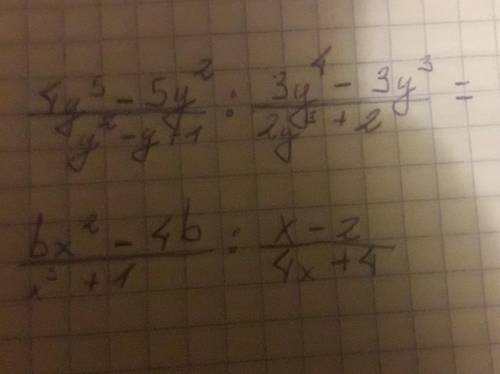 (4y⁵ - 5y²)/(y² - y + 1) : (3y⁴ - 3y³)/(2y³ + 2) =
(bx² - 4b)/(x³ + 1) : (x - 2)/(4x + 4)